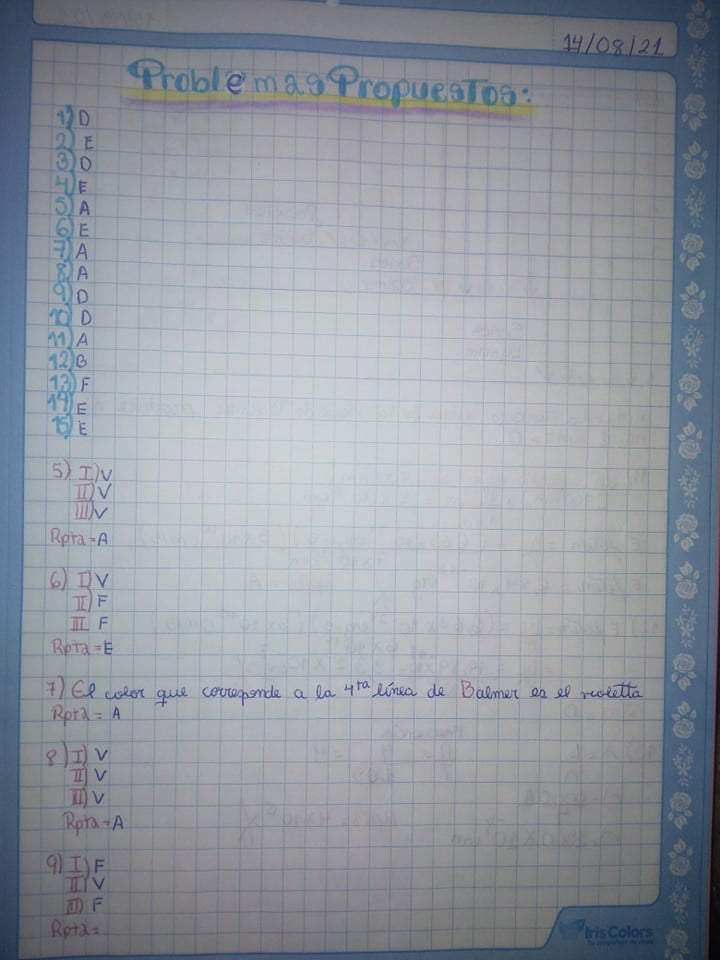 14/08/21
Problemas Propuestos:
1) D
2) E
3) D
4) E
5) A
6) E
7) A
8) A
9) D
10) D
11) A
12) B
13) F
14) E
15) E
5) I) V
II) V
III) V
Rpta = A
6) I) V
II) F
III F
Rpta = E
7) El color que corresponde a la 4ta línea de Balmer es el violetta
Rpta = A
8) I) V
II) V
III) V
Rpta = A
9) I) F
II) V
III) F
Rpta =
Iris Colors